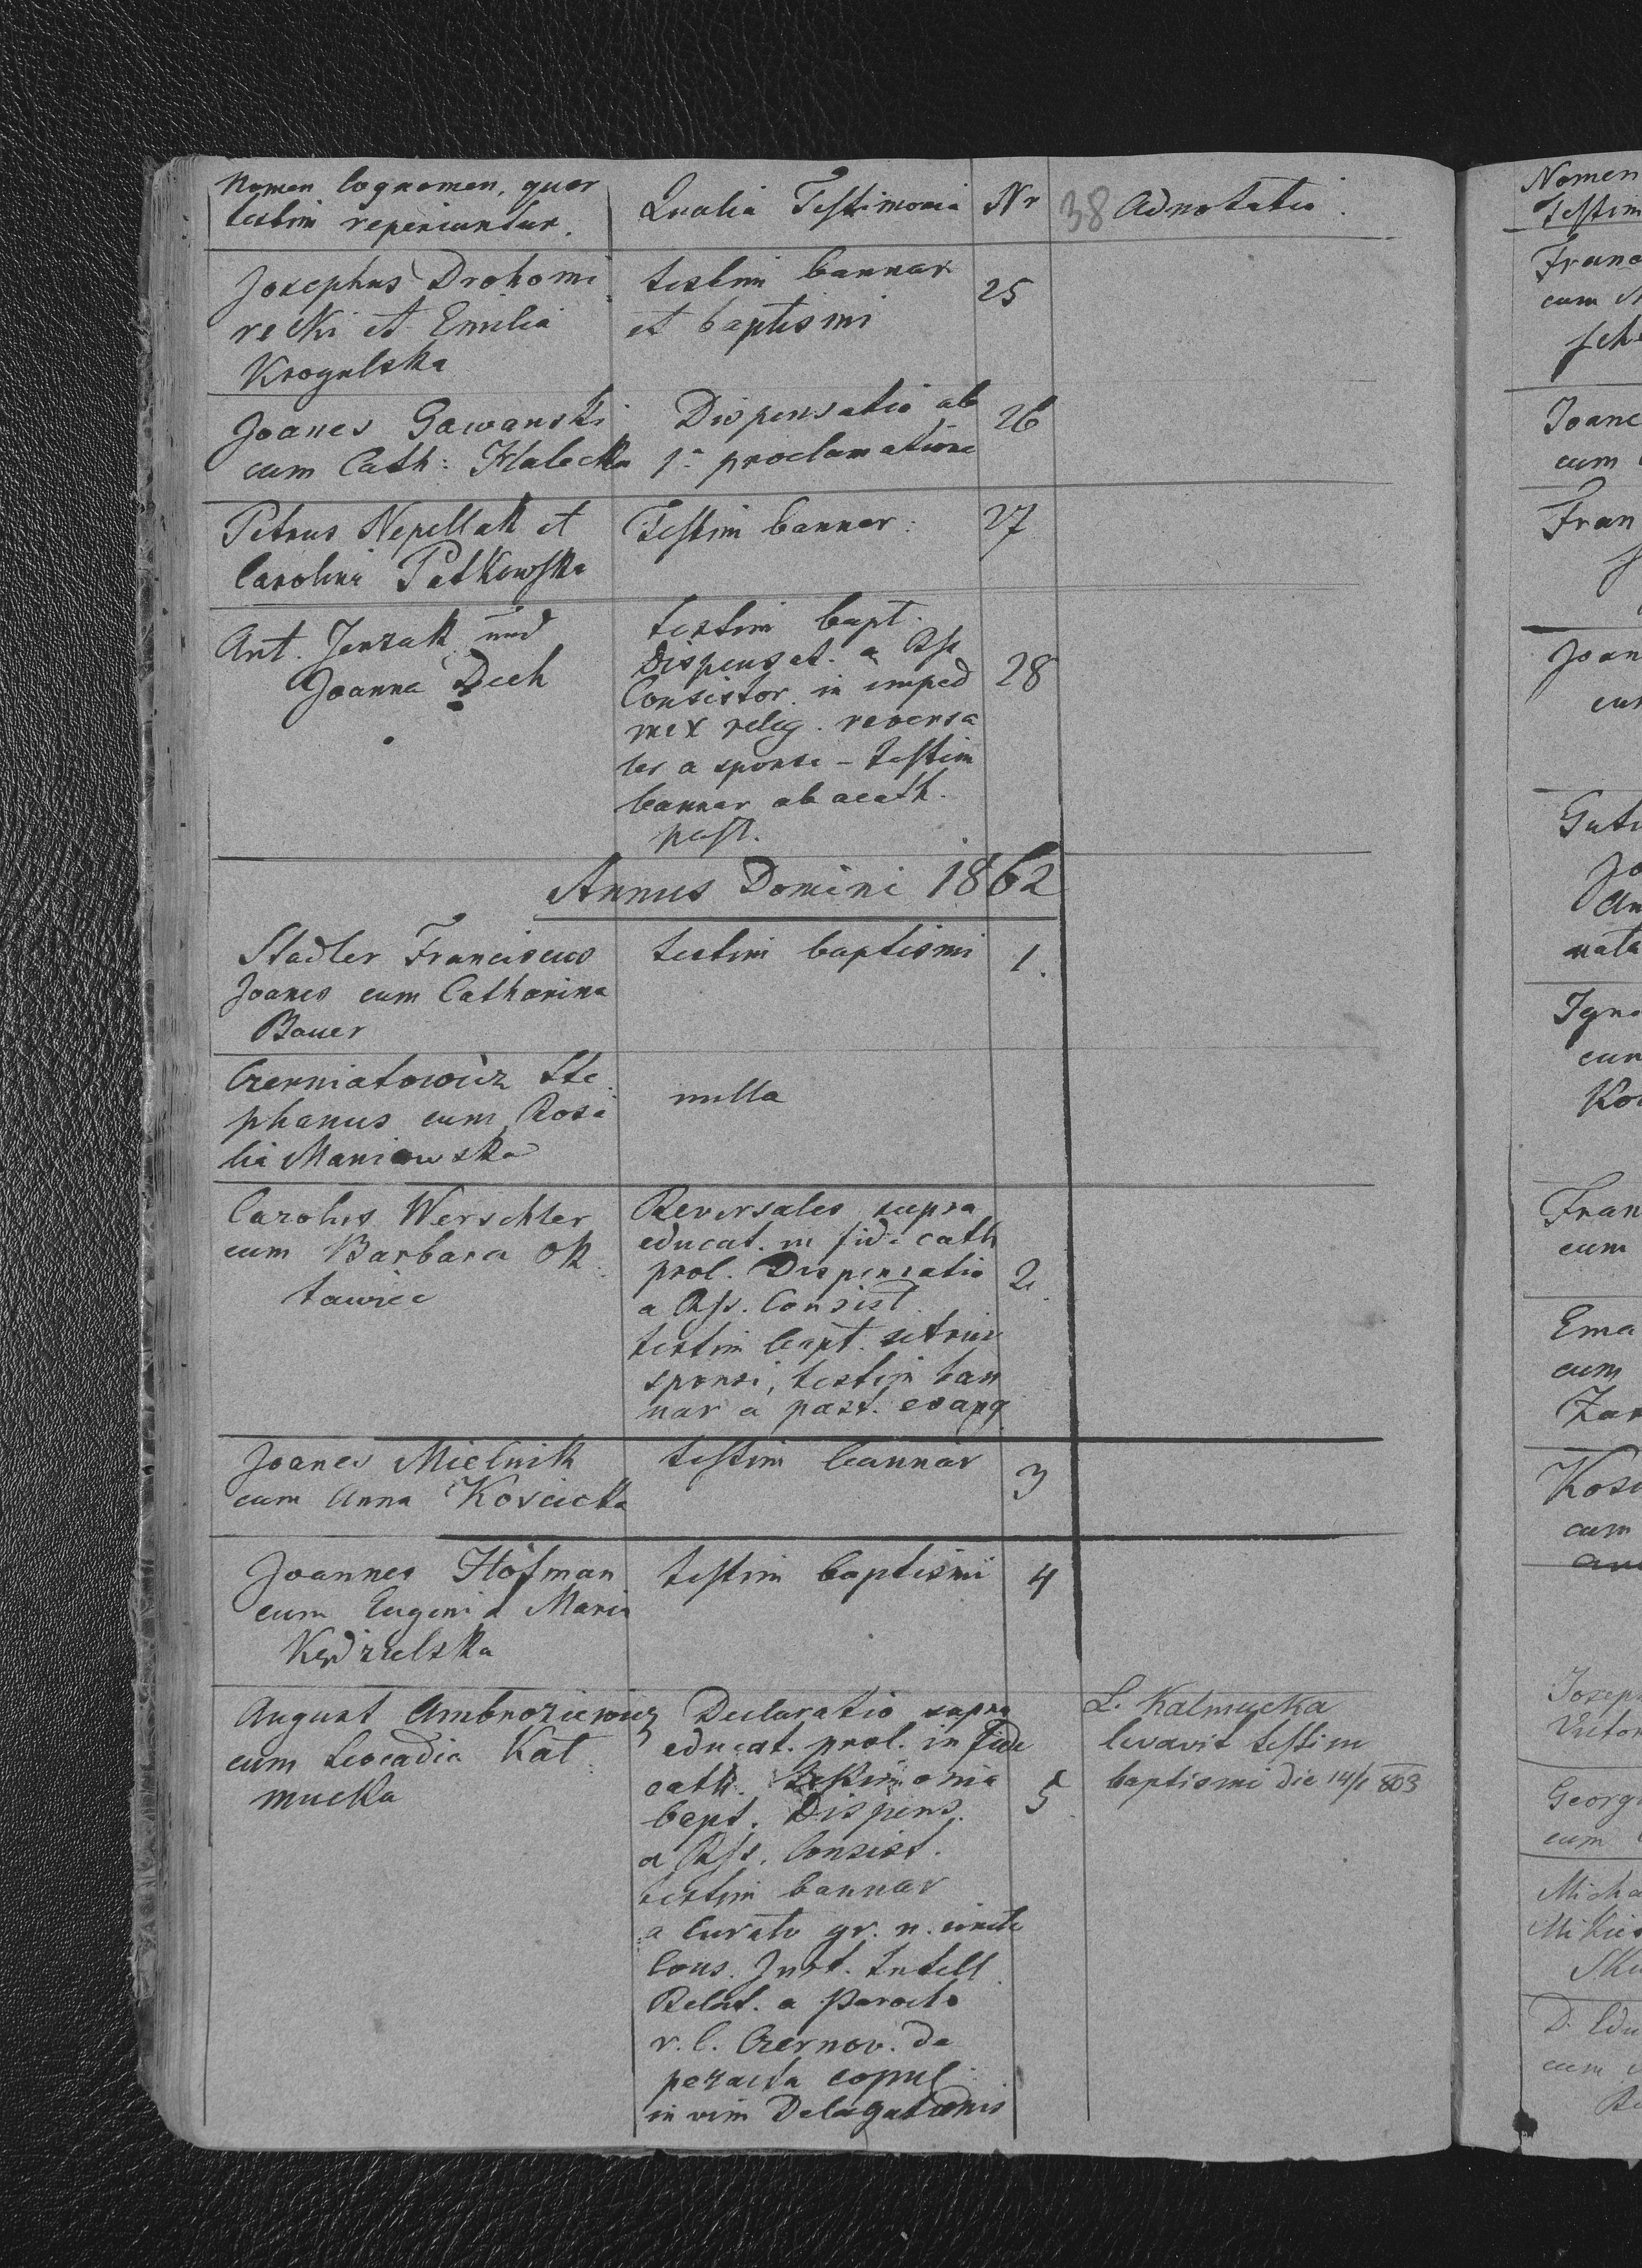 Nomen Cognomen, quor
testim reperiuntur.
Qualia Testimonia
Nr
38
Adnotatio.
Josephus Drohomi
recki et Emilia
Krogulska
testim bannar
et baptismi
25
Joanes Gawanski
cum Cath: Halecka
Dispensatio ab
1a proclamatione
26
Petrus Nepellak et
Carolina Patkowska
Testim bannor:
27
Ant. Jenzak und
Joanna Dech
testim bapt.
Dispensat. a
Consistor. in imped
mix relig. reversa
les a sponso - testim
bannar ab acath.
past.
28
Annus Domini 1862
Stadler Franciscus
Joanes cum Catharina
Bauer
testim baptismi
1.
Czerniatowicz Ste
phanus cum Rosa
lia Maniowska
nulla
Carolus Werschler
cum Barbara Ok
tawiec
Reversales supra
educat. in fide cath
prol. Dispensatio
a Consist.
testim bapt. utrius
sponsi, testim ban
nar a past. evang
2.
Joanes Mielnik
cum Anna Koscicka
testim bannar
3
Joannes Hofman
cum Eugenia Maria
Kędzielska
testim baptismi
4
August Ambroziewicz
cum Leocadia Kal
mucka
Declaratio supra
educat. prol. in fide
cath. testimonia
bept. Dispens.
a Consist.
testim bannar
a Curato gr. n. unite
Cons. Inst. Intell
Relat. a Parocho
r. l. Czernov. de
peracta copul
in vim Delegationis
5
L. Kalmucka
levavit testim
baptismi die 14/1 803
Nomen
Testim
Franc
cum
Joane
cum
Fran
Joan
cum
Jo
An
nata
Igna
cum
Fran
cum
Ema
cum
Zar
cum
Joseph
Victor
Georgi
cum
Micha
D. Edu
cum